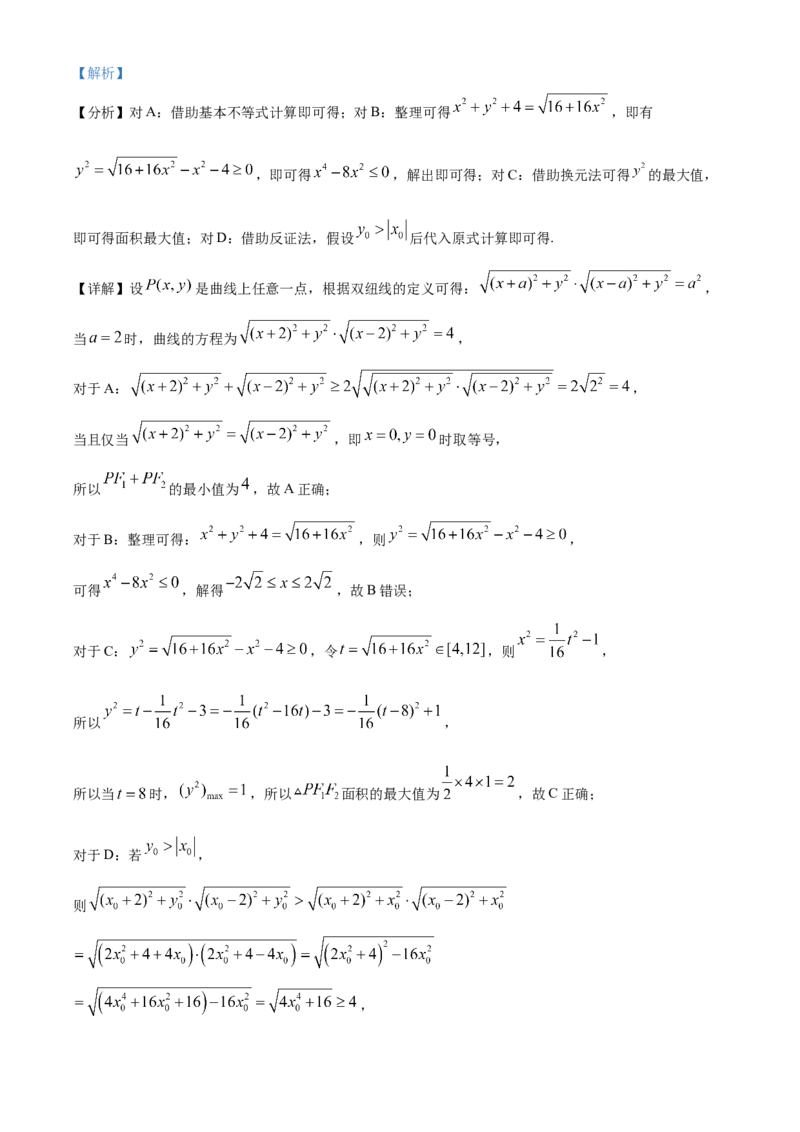 【解析】
【分析】对A：借助基本不等式计算即可得；对B：整理可得 x² + y² + 4 = √(16+16x²) ，即有
y² = √(16+16x²) − x² − 4 ≥ 0 ，即可得 x⁴ − 8x² ≤ 0 ，解出即可得；对C：借助换元法可得 y² 的最大值，
即可得面积最大值；对D：借助反证法，假设 y₀ > |x₀| 后代入原式计算即可得.
【详解】设 P(x, y) 是曲线上任意一点，根据双纽线的定义可得： √((x+a)² + y²) · √((x−a)² + y²) = a² ，
当 a = 2 时，曲线的方程为 √((x+2)² + y²) · √((x−2)² + y²) = 4 ，
对于A： √((x+2)² + y²) + √((x−2)² + y²) ≥ 2 √(√((x+2)² + y²) · √((x−2)² + y²)) = 2 √2² = 4 ，
当且仅当 √((x+2)² + y²) = √((x−2)² + y²) ，即 x = 0, y = 0 时取等号，
所以 PF₁ + PF₂ 的最小值为 4 ，故A正确；
对于B：整理可得： x² + y² + 4 = √(16+16x²) ，则 y² = √(16+16x²) − x² − 4 ≥ 0 ，
可得 x⁴ − 8x² ≤ 0 ，解得 −2√2 ≤ x ≤ 2√2 ，故B错误；
对于C： y² = √(16+16x²) − x² − 4 ≥ 0 ，令 t = √(16+16x²) ∈[4,12]，则 x² = 1/16 t² − 1 ，
所以 y² = t − 1/16 t² − 3 = − 1/16 (t² − 16t) − 3 = − 1/16 (t − 8)² + 1 ，
所以当 t = 8 时， (y²)max = 1 ，所以 △PF₁F₂ 面积的最大值为 1/2 × 4 × 1 = 2 ，故C正确；
对于D：若 y₀ > |x₀| ，
则 √((x₀+2)² + y₀²) · √((x₀−2)² + y₀²) > √((x₀+2)² + x₀²) · √((x₀−2)² + x₀²)
= √((2x₀² + 4 + 4x₀) · (2x₀² + 4 − 4x₀)) = √((2x₀² + 4)² − 16x₀²)
= √((4x₀⁴ + 16x₀² + 16) − 16x₀²) = √(4x₀⁴ + 16) ≥ 4 ，